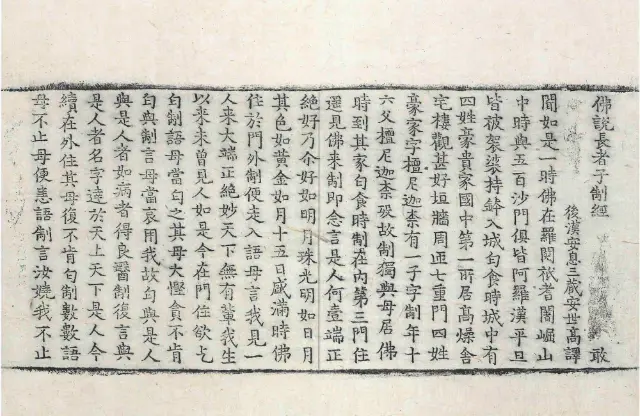 佛說長者子制經 敢
後漢安息三藏安世高譯
聞如是一時佛在羅閱祇耆闍崛山
中時與五百沙門俱皆阿羅漢平旦
皆被袈裟持鉢入城匃食時城中有
四姓豪貴家國中第一所居高燥舍
宅樓觀甚好垣牆周匝七重門四姓
豪家字檀尼迦柰有一子字制年十
六父檀尼迦柰歿故制獨與母居佛
時到其家匃食時制在內第三門住
遥見佛来制即念言是人何壹端正
絶好乃尒好如明月珠光明如日月
其色如黄金如月十五日盛滿時佛
住於門外制便走入語母言我見一
人来大端正絶妙天下無有䨇我生
以来未曾見人如是今在門住欲乞
匃制語母當匃之其母大慳貪不肯
匃與制言母當哀用我故匃與是人
與是人者如病者得良醫制復言與
是人者名字達於天上天下是人今
續在外住其母復不肯匃制數數語
母不止母便恚語制言汝嬈我不止